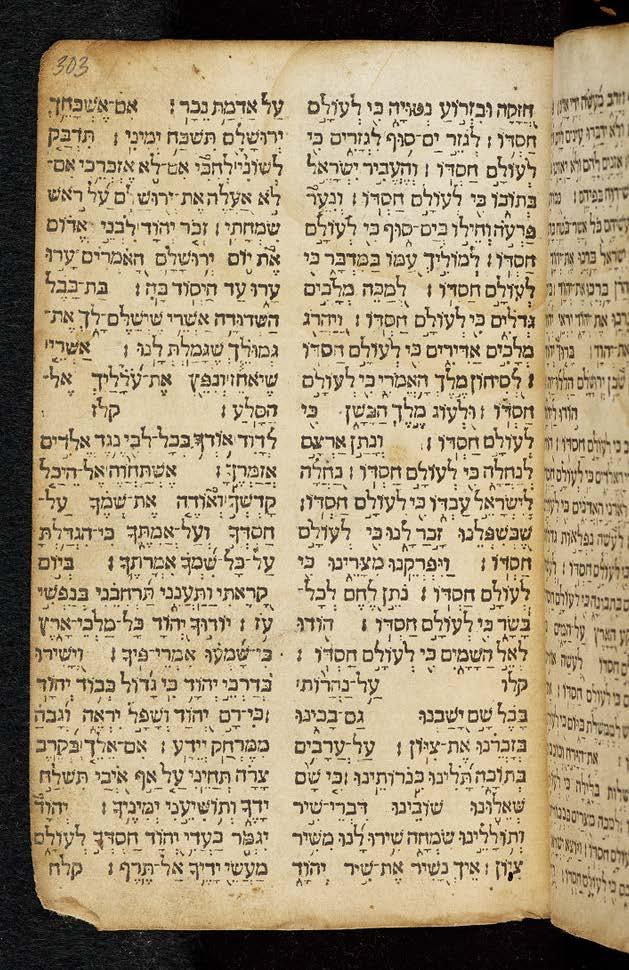 303
חזקה ובזרוע נטויה כי לעולם
חסדו ׃ לגזר ים־סוף לגזרים כי
לעולם חסדו ׃ והעביר ישראל
בתוכו כי לעולם חסדו ׃ ונער
פרעה וחילו בים־סוף כי לעולם
חסדו ׃ למוליך עמו במדבר כי
לעולם חסדו ׃ למכה מלכים
גדלים כי לעולם חסדו ׃ ויהרג
מלכים אדירים כי לעולם חסדו
׃ לסיחון מלך האמרי כי לעולם
חסדו ׃ ולעוג מלך הבשן כי
לעולם חסדו ׃ ונתן ארצם
לנחלה כי לעולם חסדו ׃ נחלה
לישראל עבדו כי לעולם חסדו ׃
שבשפלנו זכר לנו כי לעולם
חסדו ׃ ויפרקנו מצרינו כי
לעולם חסדו ׃ נתן לחם לכל־
בשר כי לעולם חסדו ׃ הודו
לאל השמים כי לעולם חסדו ׃
קלו על־נהרות
בבל שם ישבנו גם־בכינו
בזכרנו את־ציון ׃ על־ערבים
בתוכה תלינו כנרותינו ׃ כי שם
שאלונו שובינו דברי־שיר
ותוללינו שמחה שירו לנו משיר
ציון ׃ איך נשיר את־שיר יהוה
על אדמת נכר ׃ אם־אשכחך
ירושלם תשכח ימיני ׃ תדבק
לשוני לחכי אם־לא אזכרכי אם־
לא אעלה את־ירושלים על ראש
שמחתי ׃ זכר יהוה לבני אדום
את יום ירושלם האמרים ערו
ערו עד היסוד בה ׃ בת־בבל
השדודה אשרי שישלם־לך את־
גמולך שגמלת לנו ׃ אשרי
שיאחז ונפץ את־עלליך אל־
הסלע ׃ קלז
לדוד אודך בכל־לבי נגד אלהים
אזמרך ׃ אשתחוה אל־היכל
קדשך ואודה את־שמך על־
חסדך ועל־אמתך כי־הגדלת
על־כל־שמך אמרתך ׃ ביום
קראתי ותענני תרהבני בנפשי
עז ׃ יודוך יהוה כל־מלכי־ארץ
כי־שמעו אמרי־פיך ׃ וישירו
בדרכי יהוה כי גדול כבוד יהוה
׃ כי־רם יהוה ושפל יראה וגבה
ממרחק יידע ׃ אם־אלך בקרב
צרה תחיני על אף איבי תשלח
ידך ותושיעני ימינך ׃ יהוה
יגמר בעדי יהוה חסדך לעולם
מעשי ידיך אל־תרף ׃ קלח